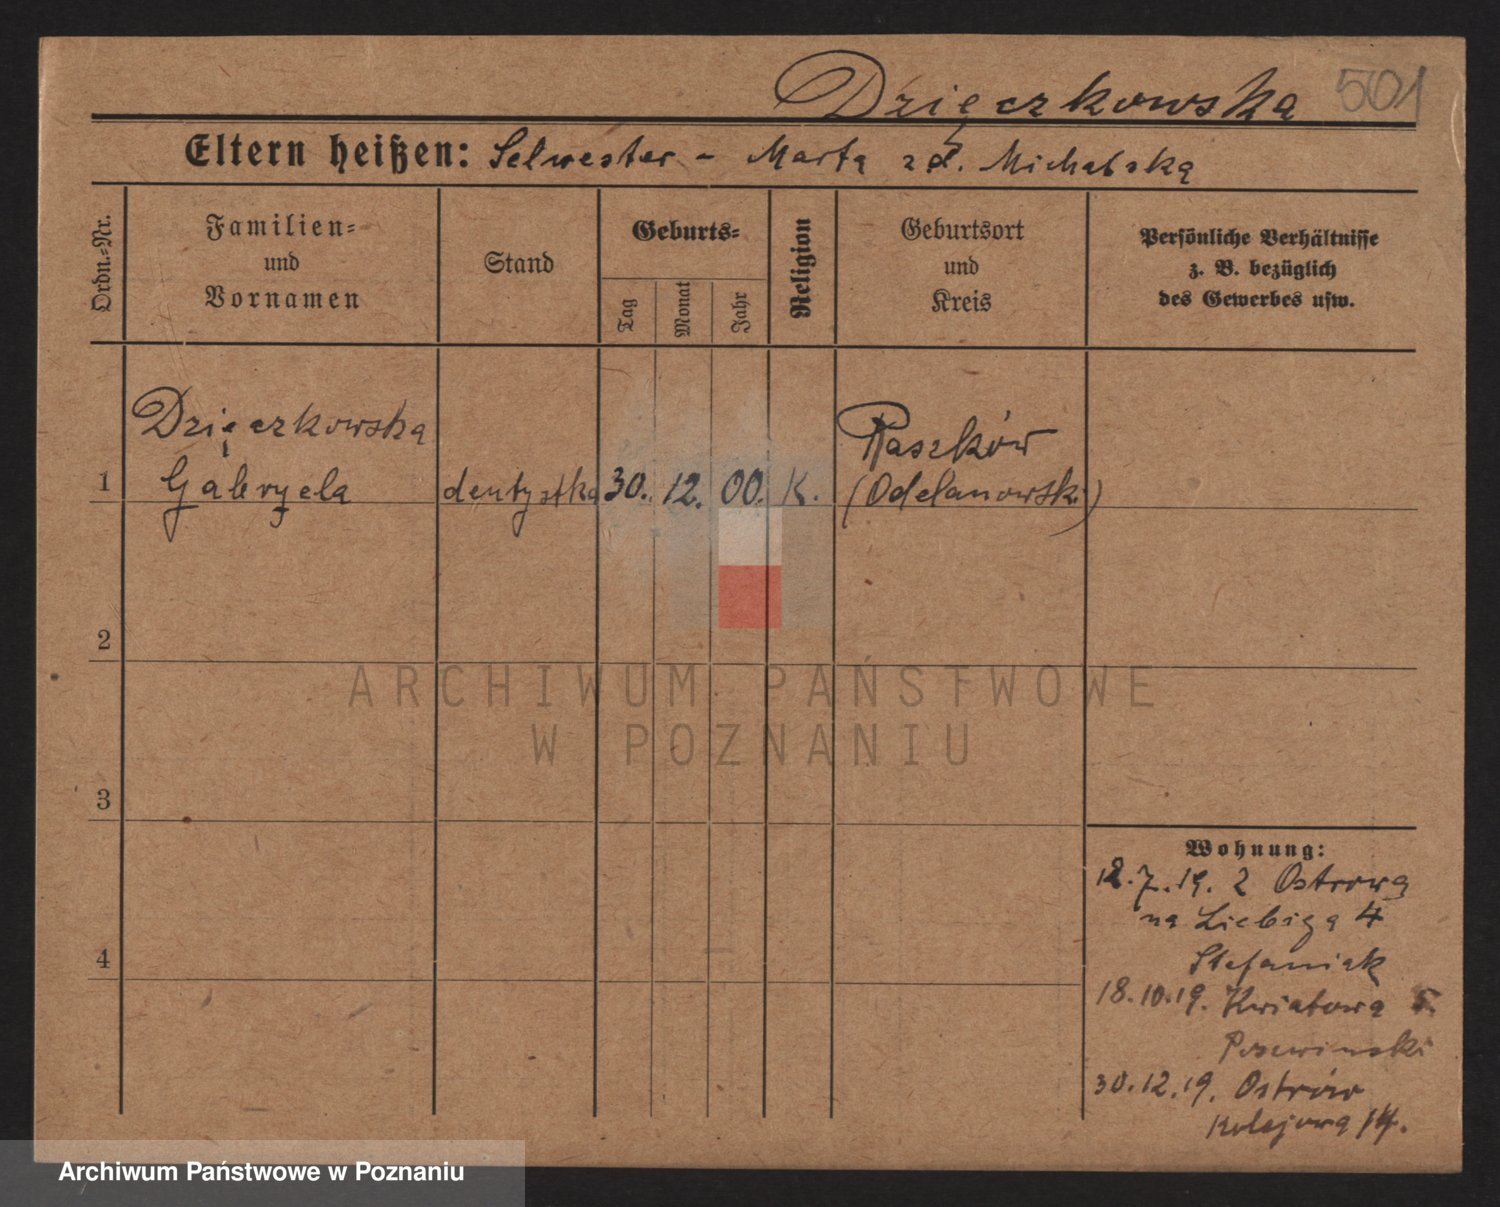 Dzięczkowska 501
Eltern heißen: Selwester - Marta zd. Michalską
Ordn.-Nr.
Familien-
und
Vornamen
Stand
Geburts-
Tag
Monat
Jahr
Religion
Geburtsort
und
Kreis
Persönliche Verhältnisse
z. B. bezüglich
des Gewerbes usw.
Dzięczkowska
1 Gabryela dentystka 30. 12. 00. K.
Raszków
(Odelanowski)
2
3
4
Wohnung:
12.7.19. z Ostrowa
na Liebiga 4
Stefaniak
18.10.19. Kwiatowa 5.
30.12.19. Ostrów
Kolejowa 14.
ARCHIWUM PAŃSTWOWE
W POZNANIU
Archiwum Państwowe w Poznaniu